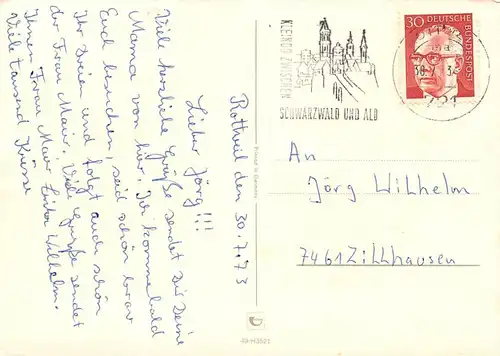 Rottweil den 30.7.73
Lieber Jörg!!!
Viele herzliche Grüße sendet Dir Deine
Mama von hier. Ich komme bald
Euch besuchen, seid schön brav
Ihr Dreien und folgt auch schön
der Frau Mair. Viele Grüße sendet
Ihnen Frau Mair Wilhelm.
Viele tausend Küsse
Printed in Germany
49-H3521
KLEINOD ZWISCHEN
SCHWARZWALD UND ALB
30
DEUTSCHE
BUNDESPOST
721
An
Jörg Wilhelm
7461 Zillhausen